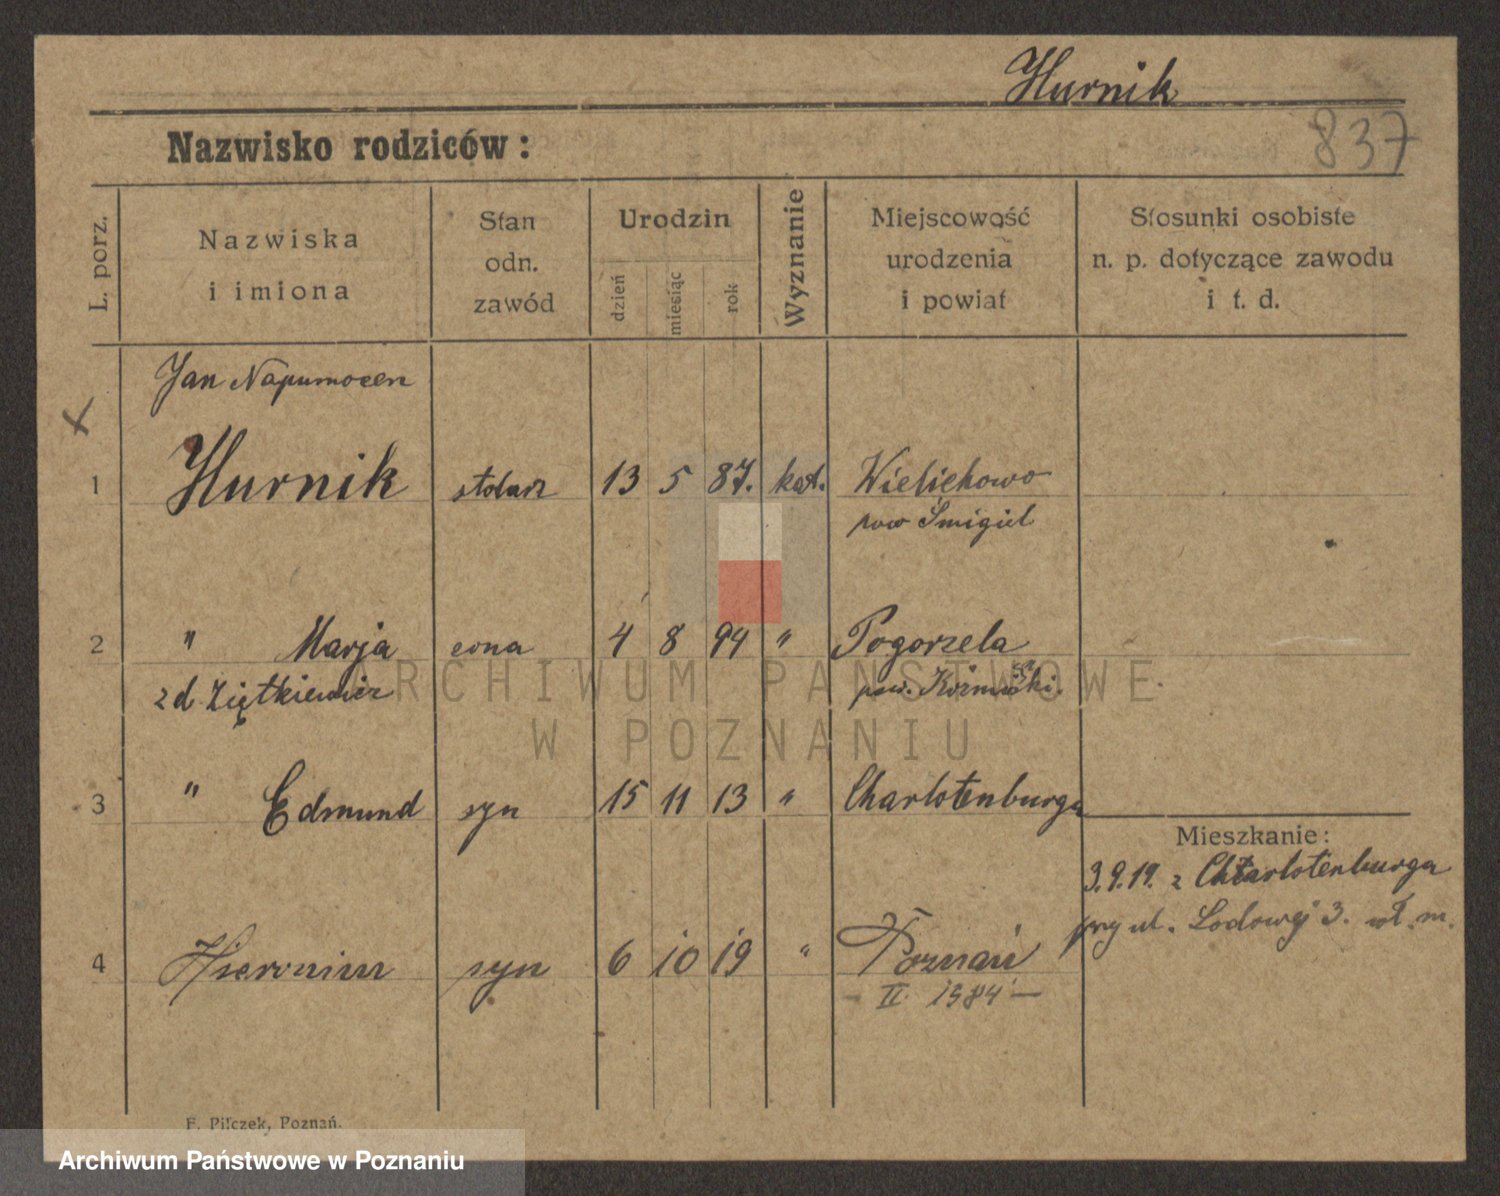 Hurnik
837
Nazwisko rodziców:
L. porz.
Nazwiska
i imiona
Stan
odn.
zawód
Urodzin
dzień
miesiąc
rok
Wyznanie
Miejscowość
urodzenia
i powiat
Stosunki osobiste
n. p. dotyczące zawodu
i t. d.
Jan Napumocen
x
1 Hurnik stolarz 13 5 87. kat. Wielichowo
pow Śmigiel
2 " Marja żona 4 8 94 " Pogorzela
z d. Ziętkiewicz pow. Koźmiński.
3 " Edmund syn 15 11 13 " Charlotenburga
Mieszkanie:
3.9.19. z Charlotenburga
przy ul. Lodowej 3. wł. m.
4 Hieronim syn 6 10 19 " Poznań
- II. 1984 -
F. Pilczek, Poznań.
ARCHIWUM PAŃSTWOWE
W POZNANIU
Archiwum Państwowe w Poznaniu